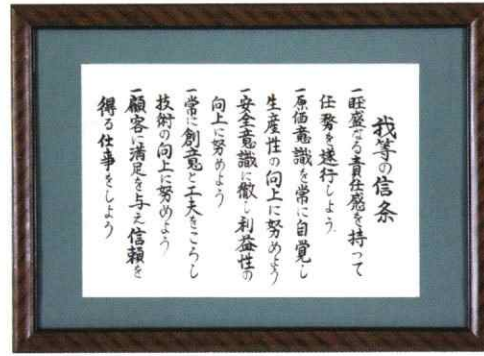 我等の信条
一旺盛なる責任感を持って
任務を遂行しよう
一原価意識を常に自覚し
生産性の向上に努めよう
一安全意識に徹し利益性の
向上に努めよう
一常に創意と工夫をこらし
技術の向上に努めよう
一顧客に満足を与え信頼を
得る仕事をしよう